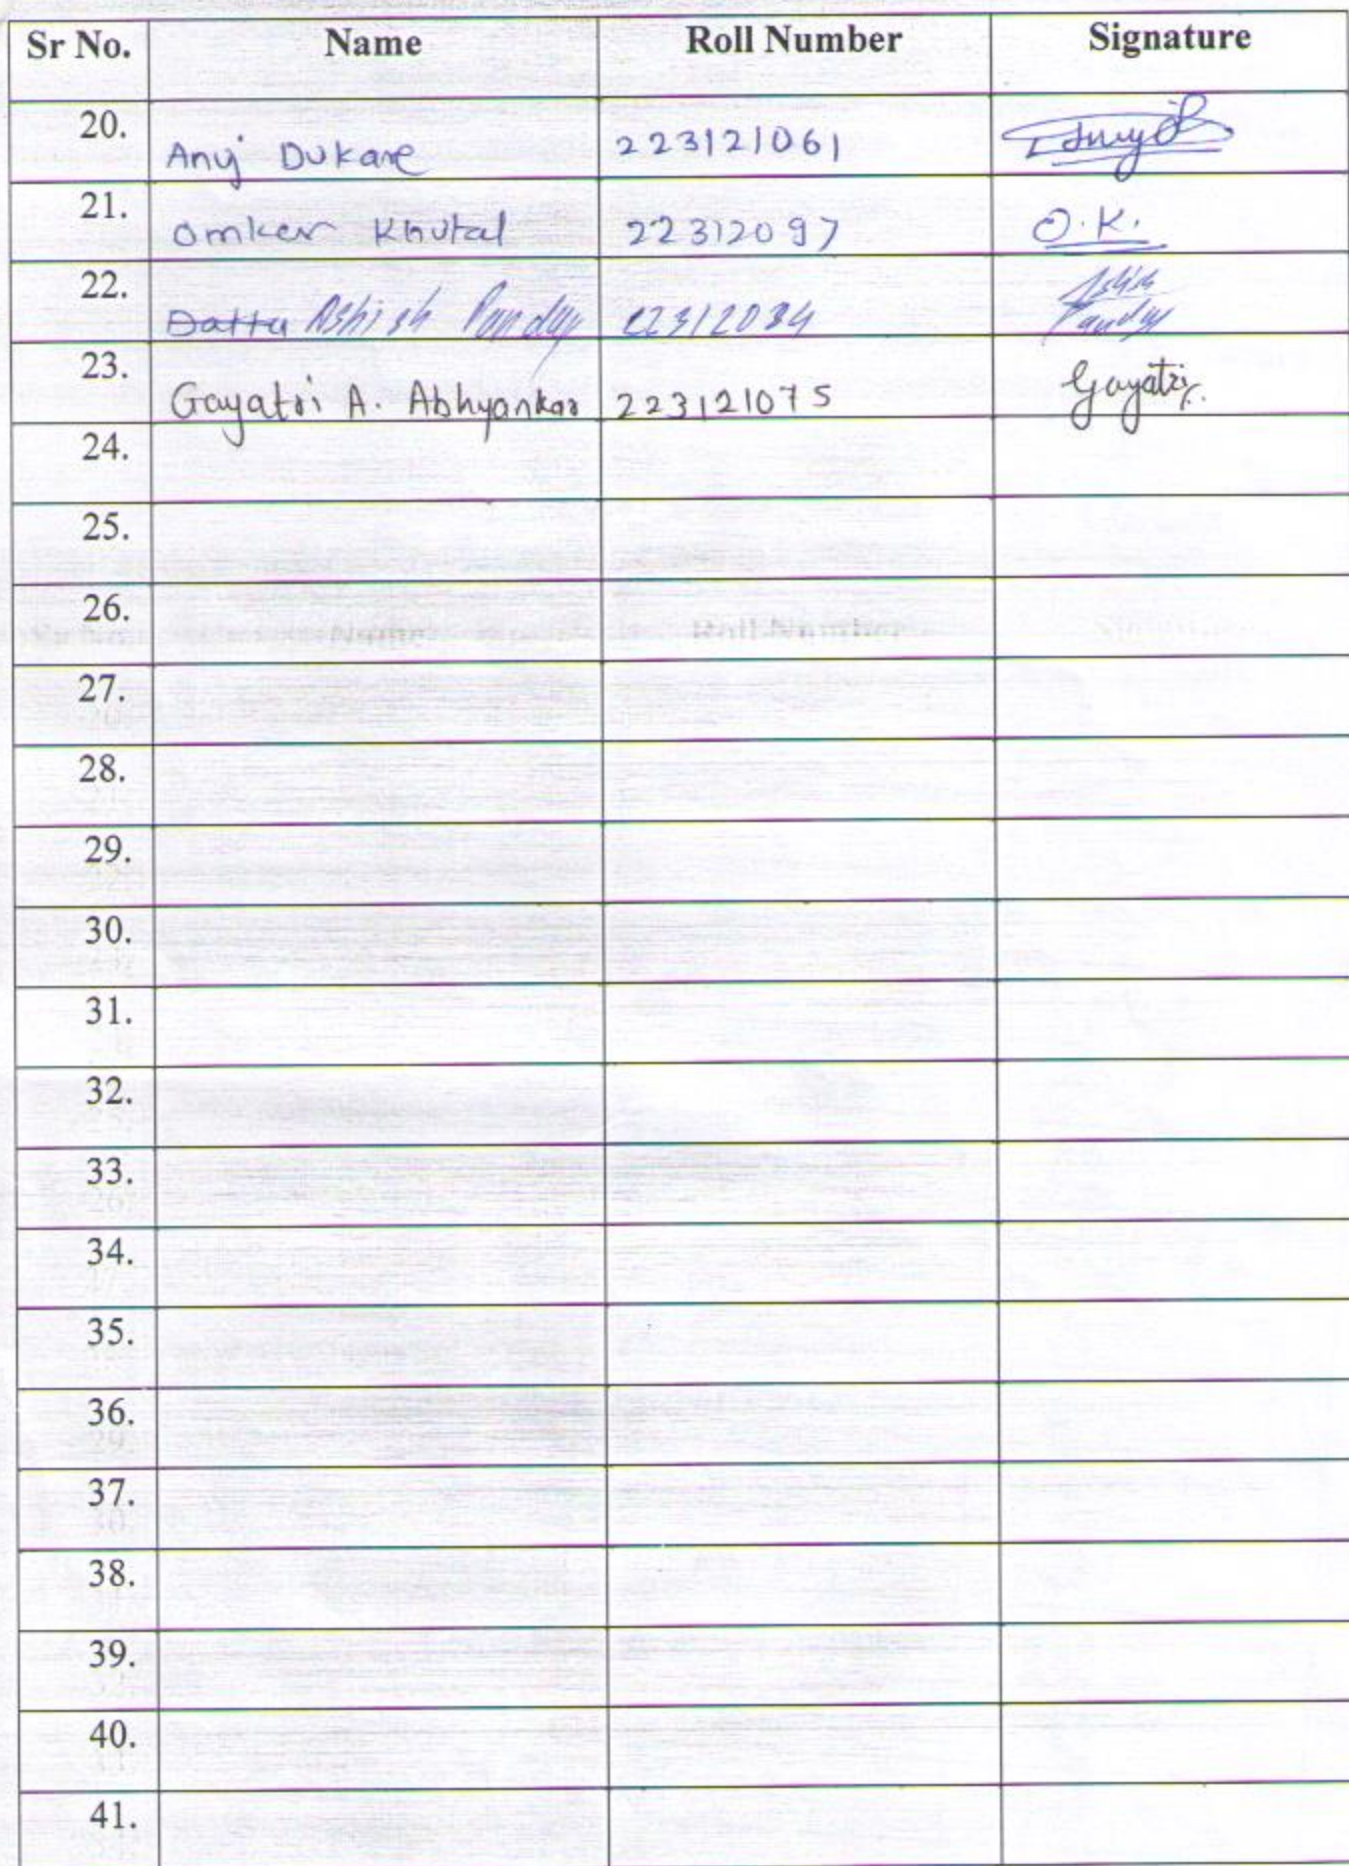 Sr No. Name Roll Number Signature
20. Anuj Dukare 223121061
21. Omkar Khutal 22312097 O.K.
22. Datta Ashish Panday 22312034 Ashish Panday
23. Gayatri A. Abhyankar 223121075 Gayatri
24.
25.
26.
27.
28.
29.
30.
31.
32.
33.
34.
35.
36.
37.
38.
39.
40.
41.